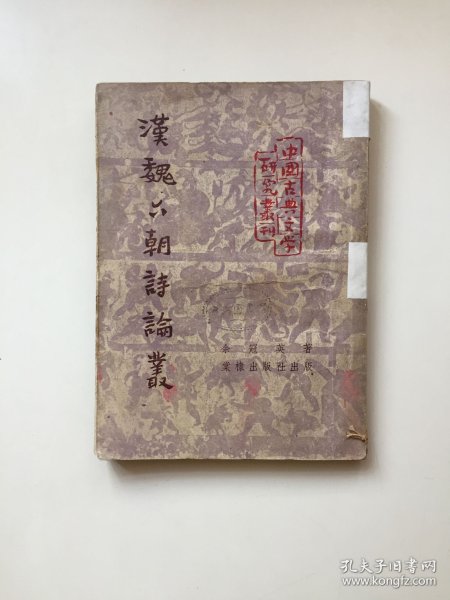 漢魏六朝詩論叢
中國古典文學
研究叢刊
余冠英 著
棠棣出版社出版
孔夫子旧书网
www.kongfz.com